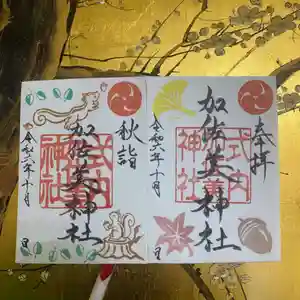 奉拝
加佐美神社
式内
神社
令和六年十月
日
秋詣
加佐美神社
神社
令和六年十月
日